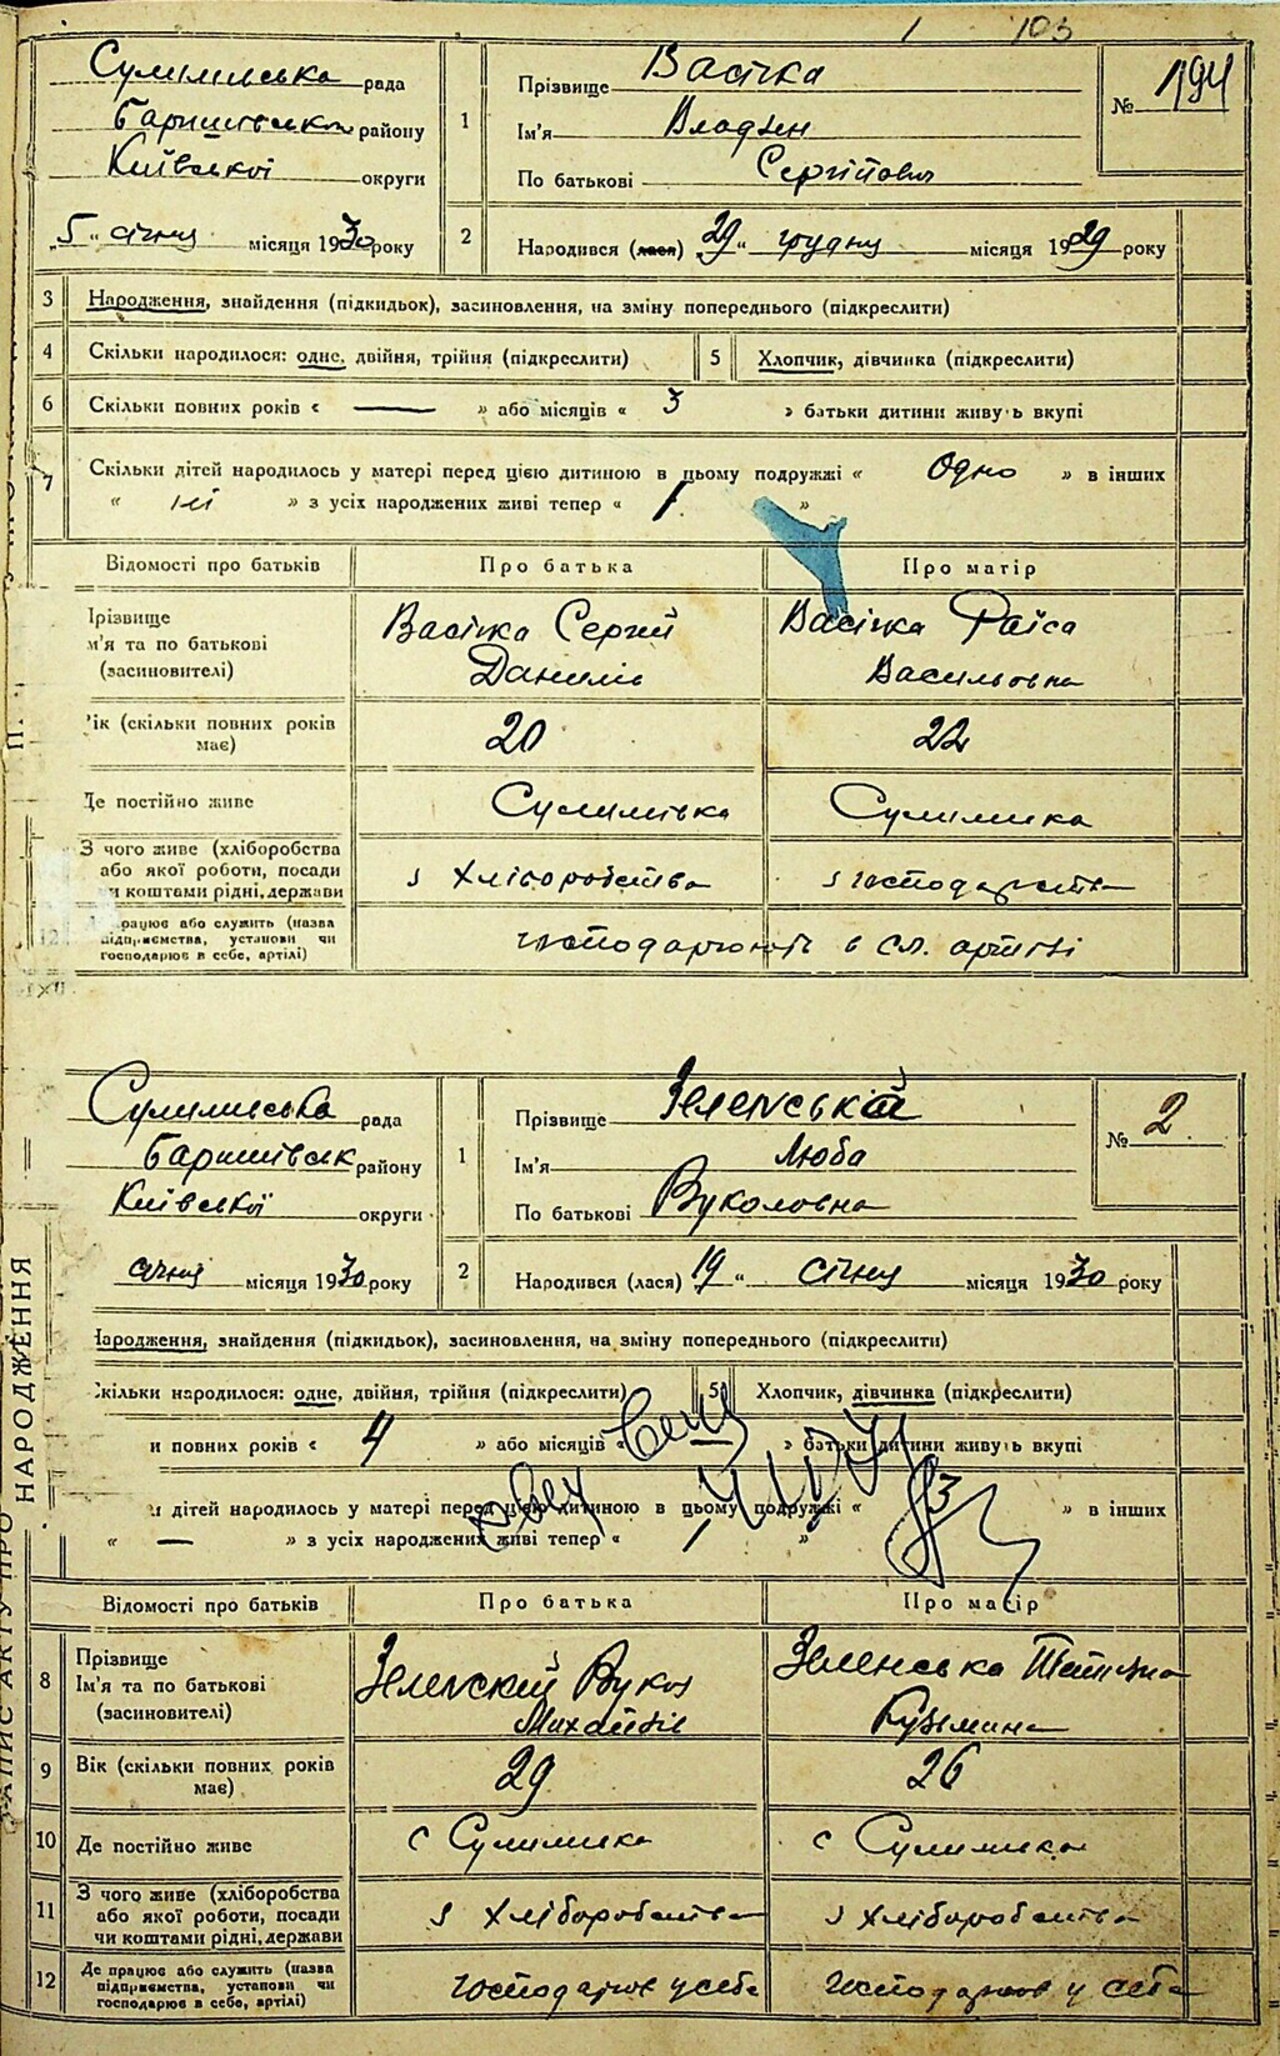 1 103
Сулимивська рада
Баришівськ району
Київської округи
„5“ січня місяця 1930 року
1
Прізвище Васічка
Ім'я Владлен
По батькові Сергійович
№ 194
2
Народився (лася) 29“ грудня місяця 1929 року
3 Народження, знайдення (підкидьок), засиновлення, на зміну попереднього (підкреслити)
4 Скільки народилося: одне, двійня, трійня (підкреслити) 5 Хлопчик, дівчинка (підкреслити)
6 Скільки повних років « — » або місяців « 3 » батьки дитини живуть вкупі
7 Скільки дітей народилось у матері перед цією дитиною в цьому подружжі « Одно » в інших
« ні » з усіх народжених живі тепер « 1 »
Відомості про батьків Про батька Про матір
Прізвище
м'я та по батькові
(засиновителі)
Васічка Сергій
Данилів
Васічка Раїса
Васильовна
Вік (скільки повних років
має)
20 22
Де постійно живе Сулимівка Сулимика
З чого живе (хліборобства
або якої роботи, посади
чи коштами рідні, держави
з хліборобства з господарства
12
працює або служить (назва
підприємства, установи чи
господарює в себе, артілі)
господарюють в СЛ. артілі
Сулимивська рада
Баришівськ району
Київської округи
січня місяця 1930 року
1
Прізвище Зеленський
Ім'я Люба
По батькові Вуколовна
№ 2
2
Народився (лася) 19“ січня місяця 1930 року
Народження, знайдення (підкидьок), засиновлення, на зміну попереднього (підкреслити)
Скільки народилося: одне, двійня, трійня (підкреслити) 5 Хлопчик, дівчинка (підкреслити)
и повних років « 4 » або місяців « — » батьки дитини живуть вкупі
и дітей народилось у матері перед цією дитиною в цьому подружжі « 3 » в інших
« — » з усіх народжених живі тепер « 1 »
Відомості про батьків Про батька Про матір
8
Прізвище
Ім'я та по батькові
(засиновителі)
Зеленский Вукол
Михайлів
Зеленська Тетяна
Кузьмина
9
Вік (скільки повних років
має)
29 26
10 Де постійно живе с Сулимика с Сулимика
11
З чого живе (хліборобства
або якої роботи, посади
чи коштами рідні, держави
з хліборобства з хліборобства
12
Де працює або служить (назва
підприємства, установи чи
господарює в себе, артілі)
господарює у себе господарює у себе
ЗАПИС АКТУ ПРО НАРОДЖЕННЯ